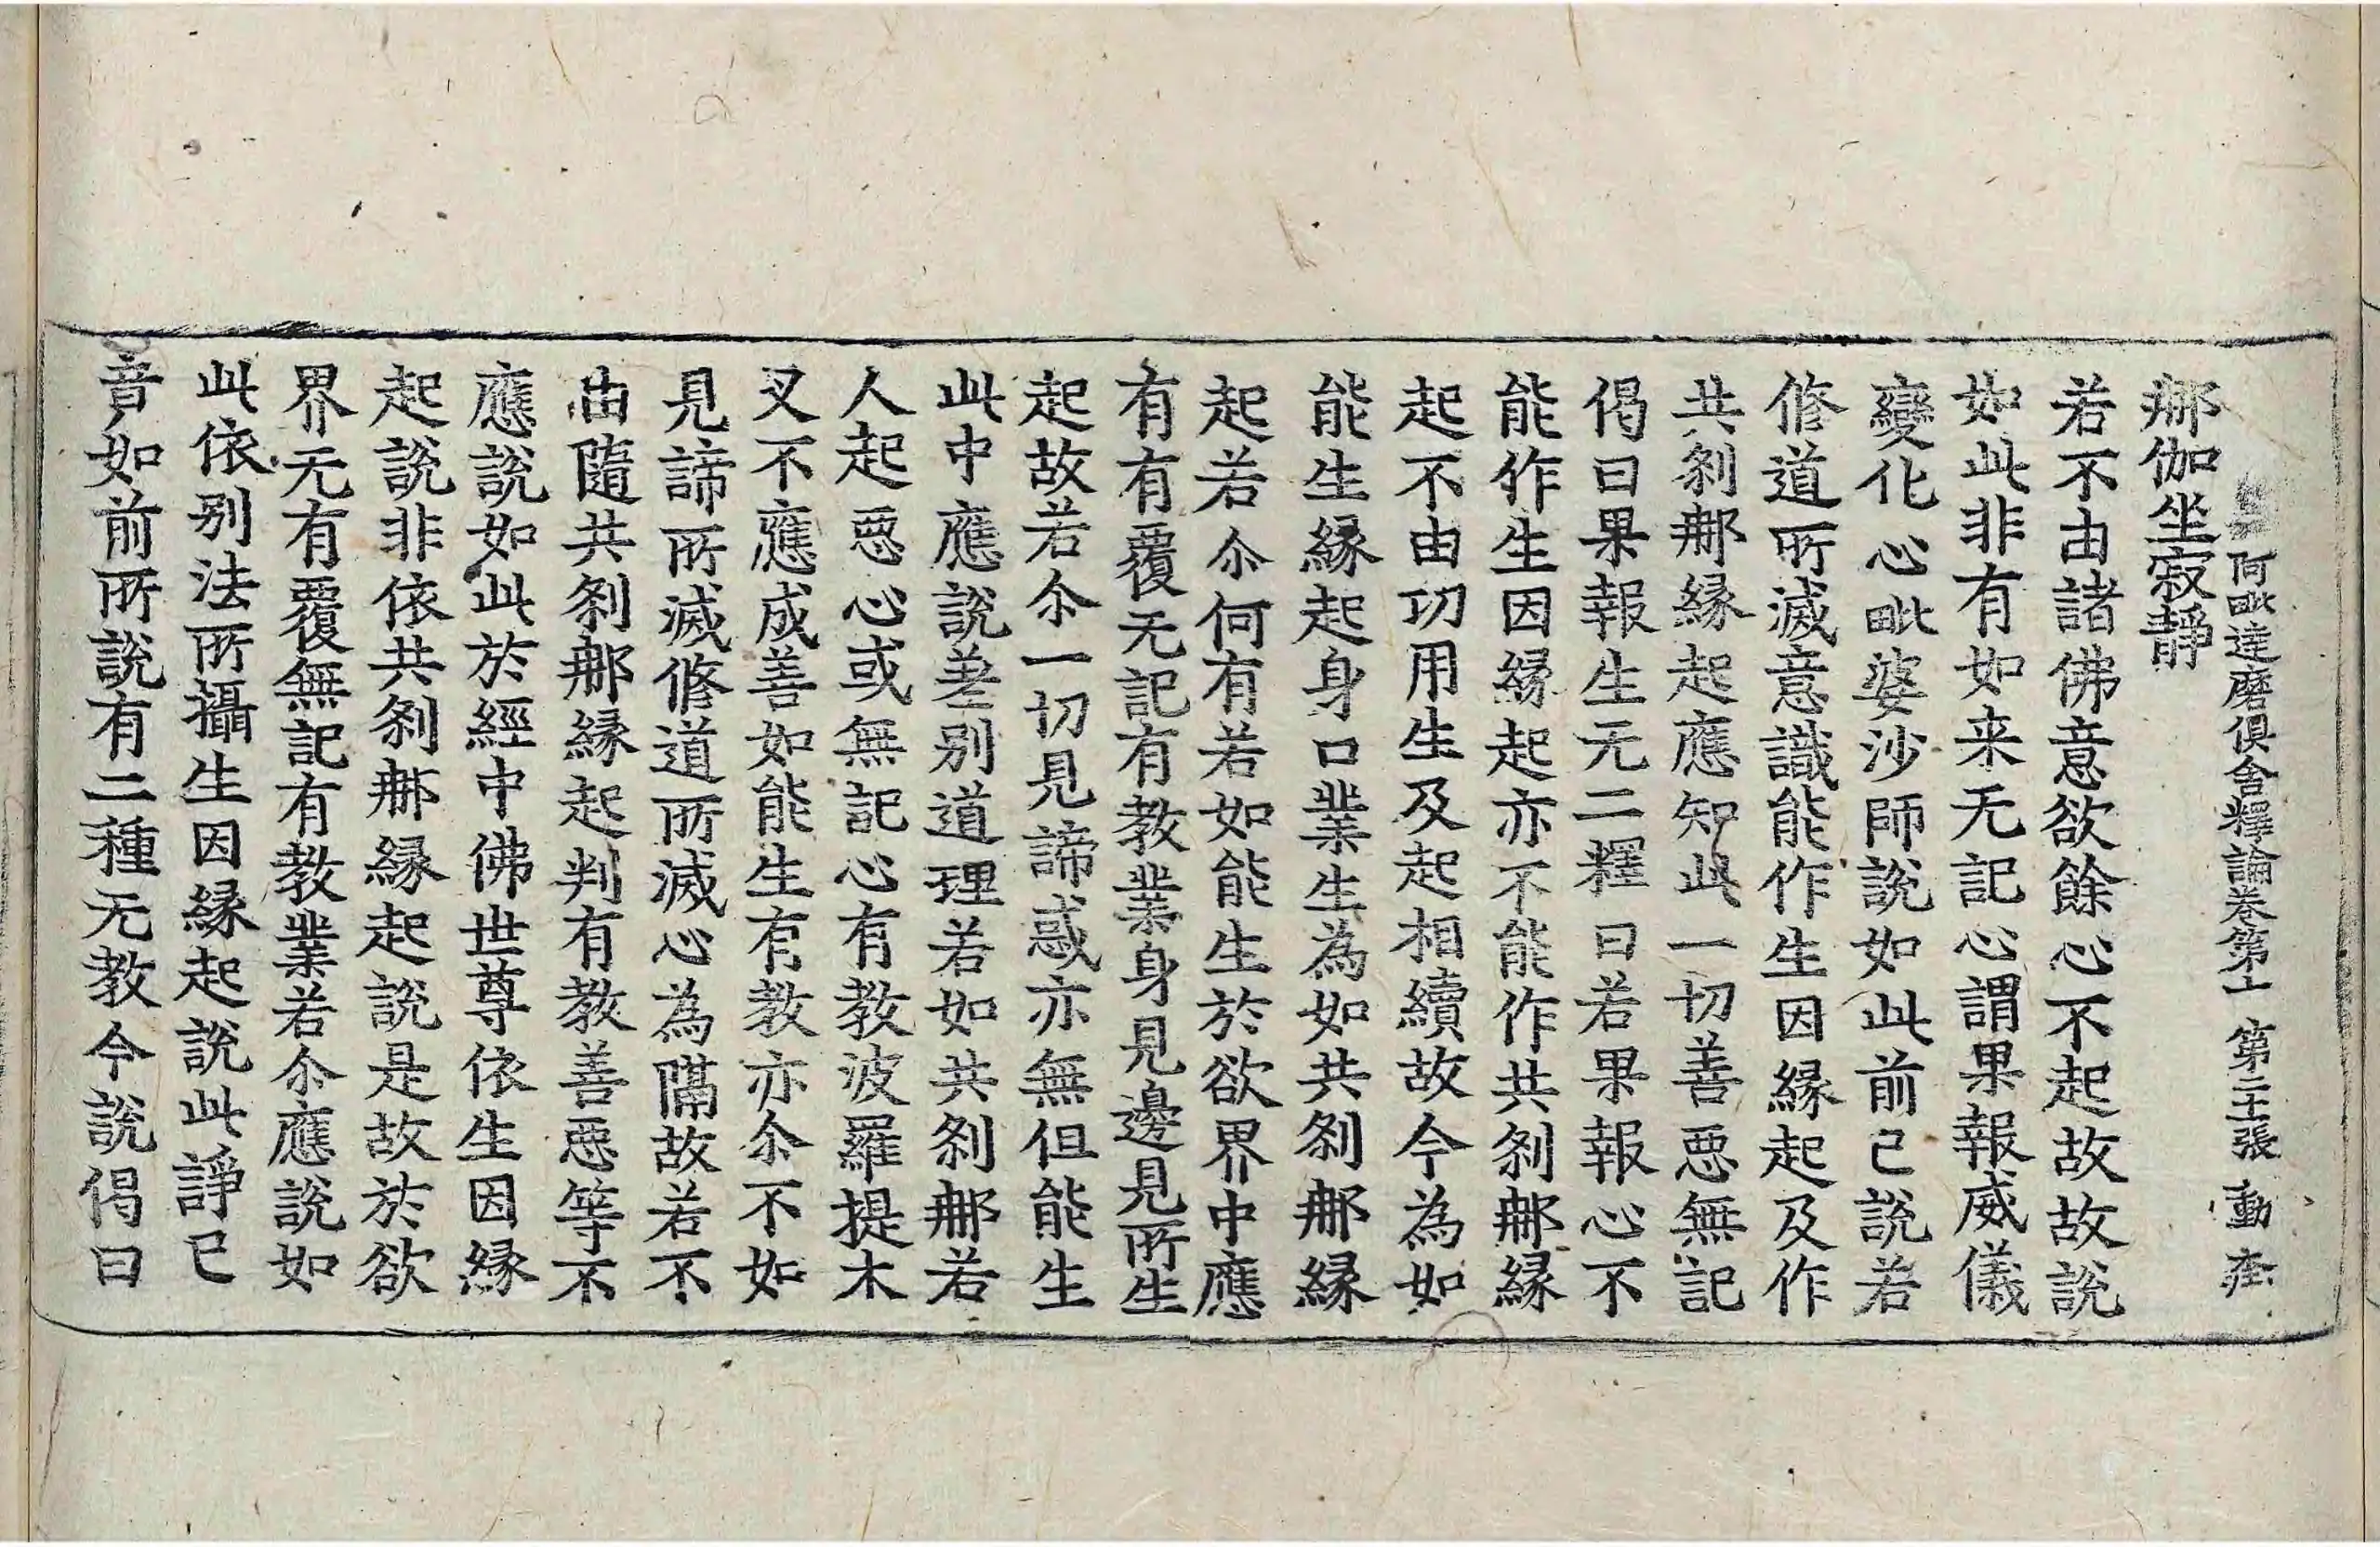 阿毗達磨俱舍釋論卷第十 第二十張 動
那伽坐寂靜
若不由諸佛意欲餘心不起故故說
如此非有如来无記心謂果報威儀
變化心毗婆沙師說如此前已說若
修道所滅意識能作生因緣起及作
共剎那緣起應知此一切善惡無記
偈曰果報生无二釋曰若果報心不
能作生因緣起亦不能作共剎那緣
起不由功用生及起相續故今為如
能生緣起身口業生為如共剎那緣
起若尒何有若如能生於欲界中應
有有覆无記有教業身見邊見所生
起故若尒一切見諦惑亦無但能生
此中應說差別道理若如共剎那若
人起惡心或無記心有教波羅提木
叉不應成善如能生有教亦尒不如
見諦所滅修道所滅心為隔故若不
由隨共剎那緣起判有教善惡等不
應說如此於經中佛世尊依生因緣
起說非依共剎那緣起說是故於欲
界无有覆無記有教業若尒應說如
此依別法所攝生因緣起說此諍已
竟如前所說有二種无教今說偈曰